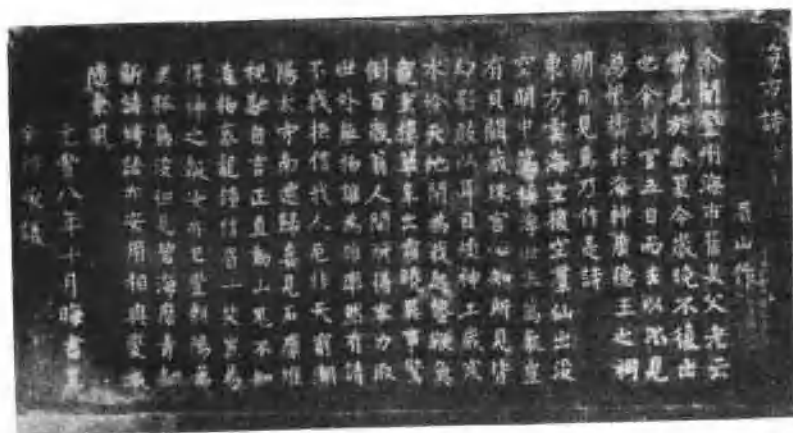 詩
眉山作
余聞登州海市舊矣父老云
常見於春夏今歲晚不復出
也余到官五日而去以不見
為恨禱於海神廣德王之祠
明日見焉乃作是詩
東方雲海空復空羣仙出沒
空明中蕩搖浮世生萬象豈
有貝闕藏珠宮心知所見皆
幻影敢以耳目煩神工歲寒
水冷天地閉為我起蟄鞭魚
龍重樓翠阜出霜曉異事驚
倒百歲翁人間所得容力取
世外無物誰為雄率然有請
不我拒信我人厄非天窮潮
陽太守南遷歸喜見石廩堆
祝融自言正直動山鬼不知
造物哀龍鍾信眉一笑豈易
得神之報汝亦已豐斜陽萬
里孤鳥沒但見碧海磨青銅
新詩綺語亦安用相與變滅
隨東風
元豐八年十月晦書呈
承議